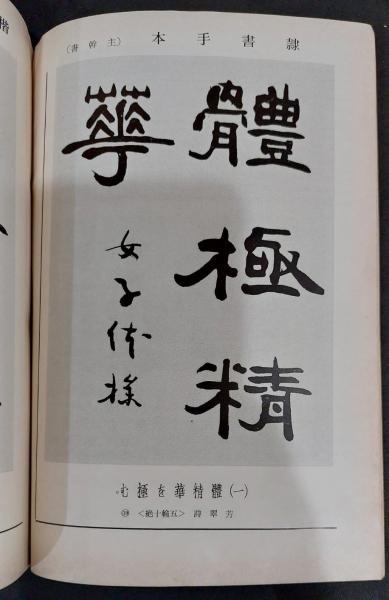 隷書手本（主幹書）
體極精
華
女子体操
（一）體精華を極む。
芳翠詩〈五輪十絶〉⑲
楷